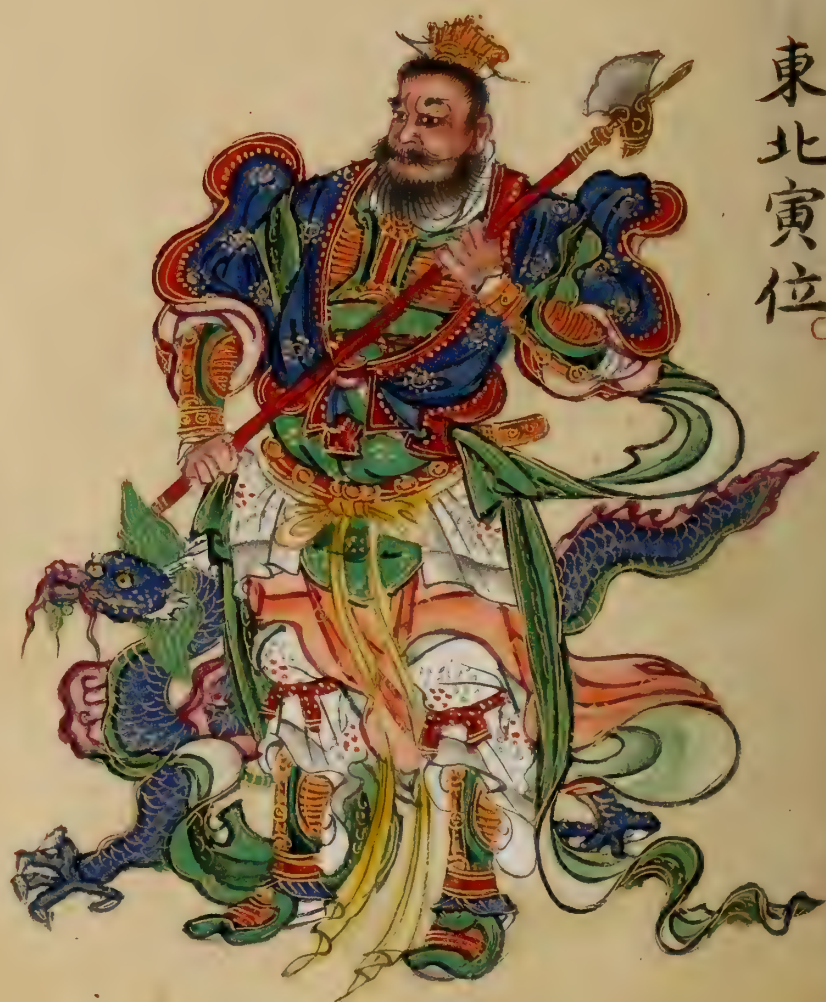 東北寅位